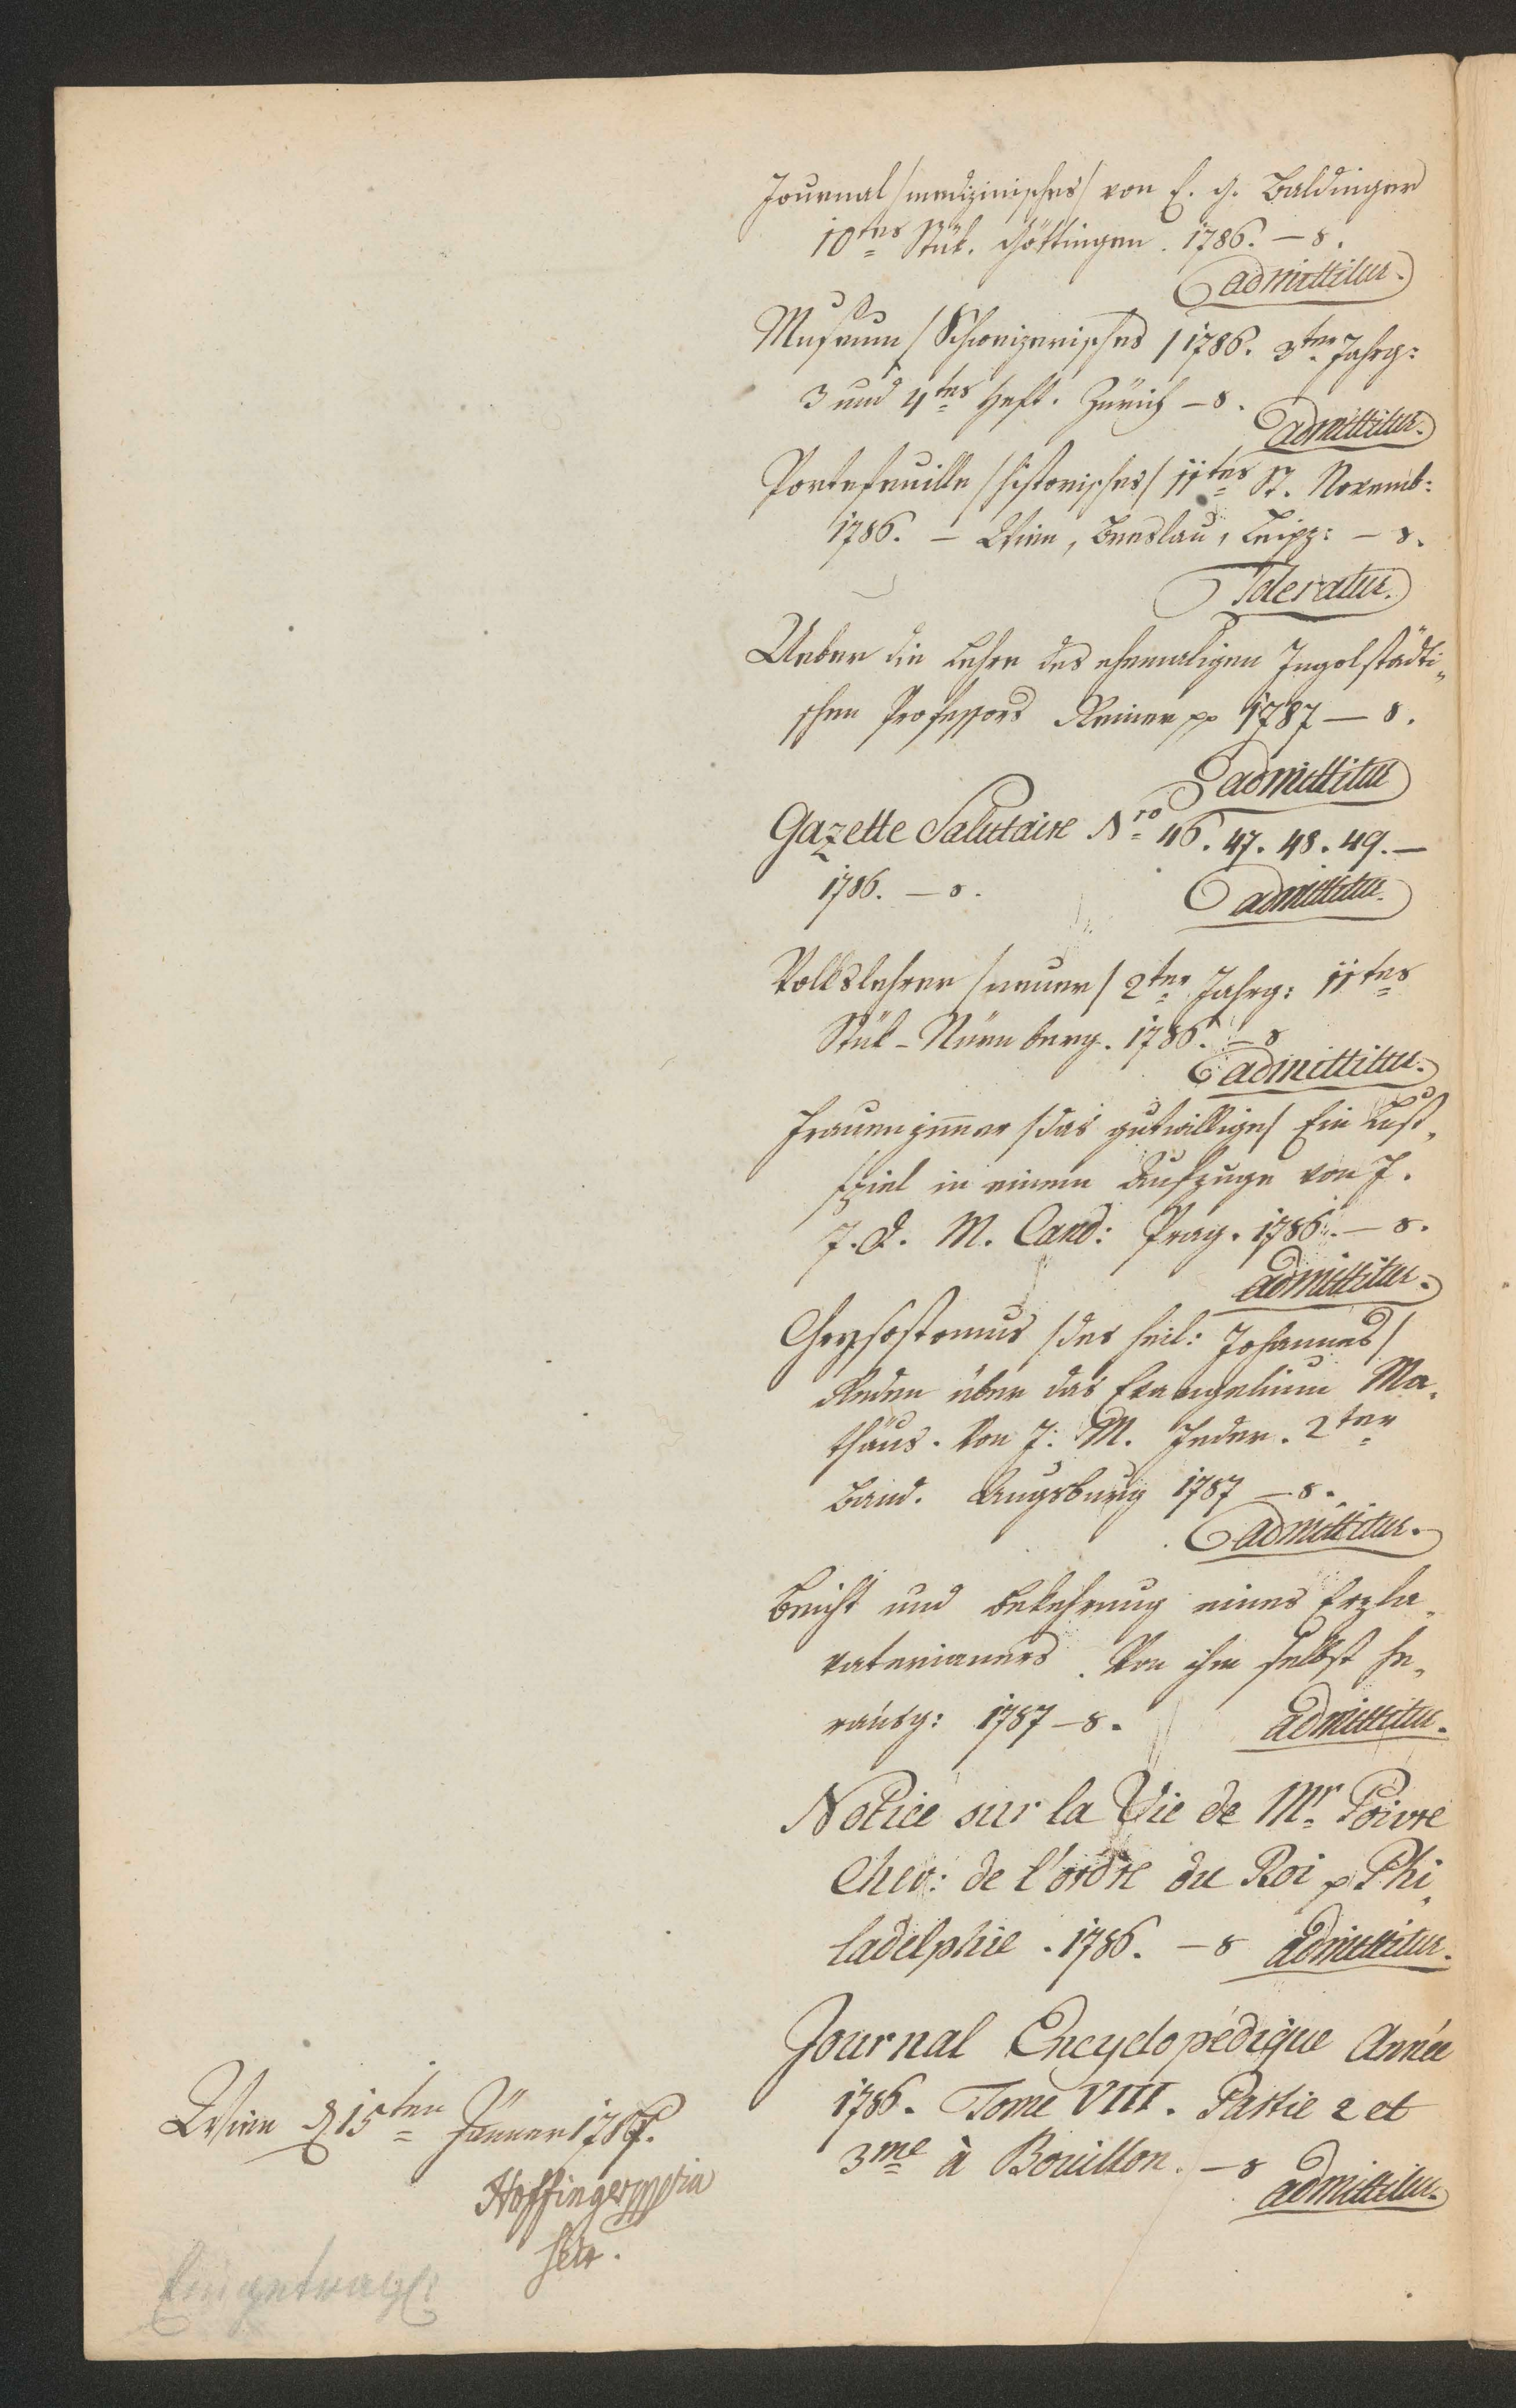 Journal /medizinisches/ von E. G. Baldinger
10tes Stük. Göttingen. 1786. – 8.
admittitur.
Museum / Schweizerisches / 1786. 3ter Jahrg:
3 und 4tes Heft. Zürich – 8.
admittitur.
Portefeuille /historisches/ 11tes St. Novemb:
1786. – Wien, Breslau, Leipz: – 8.
Toleratur.
Ueber die Lehre des ehemaligen Ingolstädti„
schen Professors Reiner pp 1787 – 8.
admittitur
Gazette Salutaire Nro 46. 47. 48. 49. –
1786. – 8.
admittitur.
Volkslehrer /neuer/ 2ter Jahrg: 11tes
Stük – Nürnberg. 1786. – 8
admittitur.
Frauenzimmer /das gutwillige/ Ein Lust„
spiel in einem Aufzuge von J.
J. Q. M. Cand: Prag. 1786. – 8.
admittitur.
Chrysostomus /des heil: Johannes/
Reden über das Evangelium Ma„
thäus. Von J. M. Feder. 2ter
Band. Augsburg 1787 – 8.
admittitur.
Beicht und Bekehrung eines Erzla„
vaterianers. Von ihm selbst he„
rausg: 1787 – 8. admittitur.
Notice sur la Vie de Mr. Poivre
Chev: de l'ordre du Roi p Phi„
ladelphie. 1786. – 8 admittitur.
Journal Encyclopédique Année
1786. Tome VIII. Partie 2 et
3me à Bouillon. – 8
admittitur.
Wien d 15ten Jänner 1787.
Hoffinger mpria
Sekr.
Eingetrag: